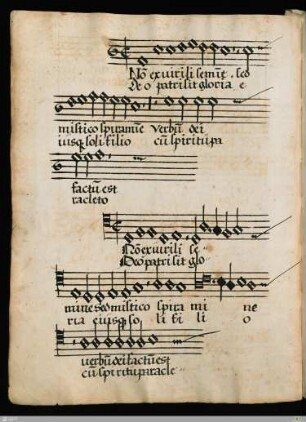 Nõ ex virili semĩe . sed
Deo patri sit gloria e
mistico spiramĩe verbũ dei
iusq̃ soli filio cũ spiritu pa
factũ est
racleto
Nõ ex virili se
Deo patri sit glo
mine sed mistico spira mi ne
ria eiusq̃ so li fi li o
verbũ dei factũ est
cũ spiritu paracle